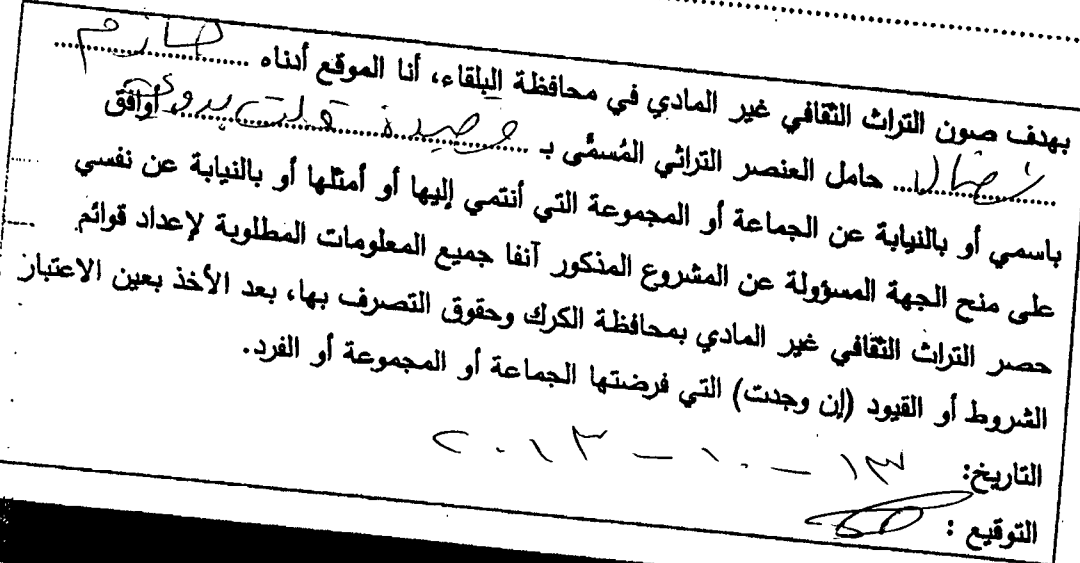 بهدف صون التراث الثقافي غير المادي في محافظة البلقاء، أنا الموقع أدناه حازم
نضال حامل العنصر التراثي المُسمَّى بـ قصيدة قلت بدوي أوافق
باسمي أو بالنيابة عن الجماعة أو المجموعة التي أنتمي إليها أو أمثلها أو بالنيابة عن نفسي
على منح الجهة المسؤولة عن المشروع المذكور آنفا جميع المعلومات المطلوبة لإعداد قوائم
حصر التراث الثقافي غير المادي بمحافظة الكرك وحقوق التصرف بها، بعد الأخذ بعين الاعتبار
الشروط أو القيود (إن وجدت) التي فرضتها الجماعة أو المجموعة أو الفرد.
التاريخ: ١٣ - ١٠ - ٢٠١٣
التوقيع :